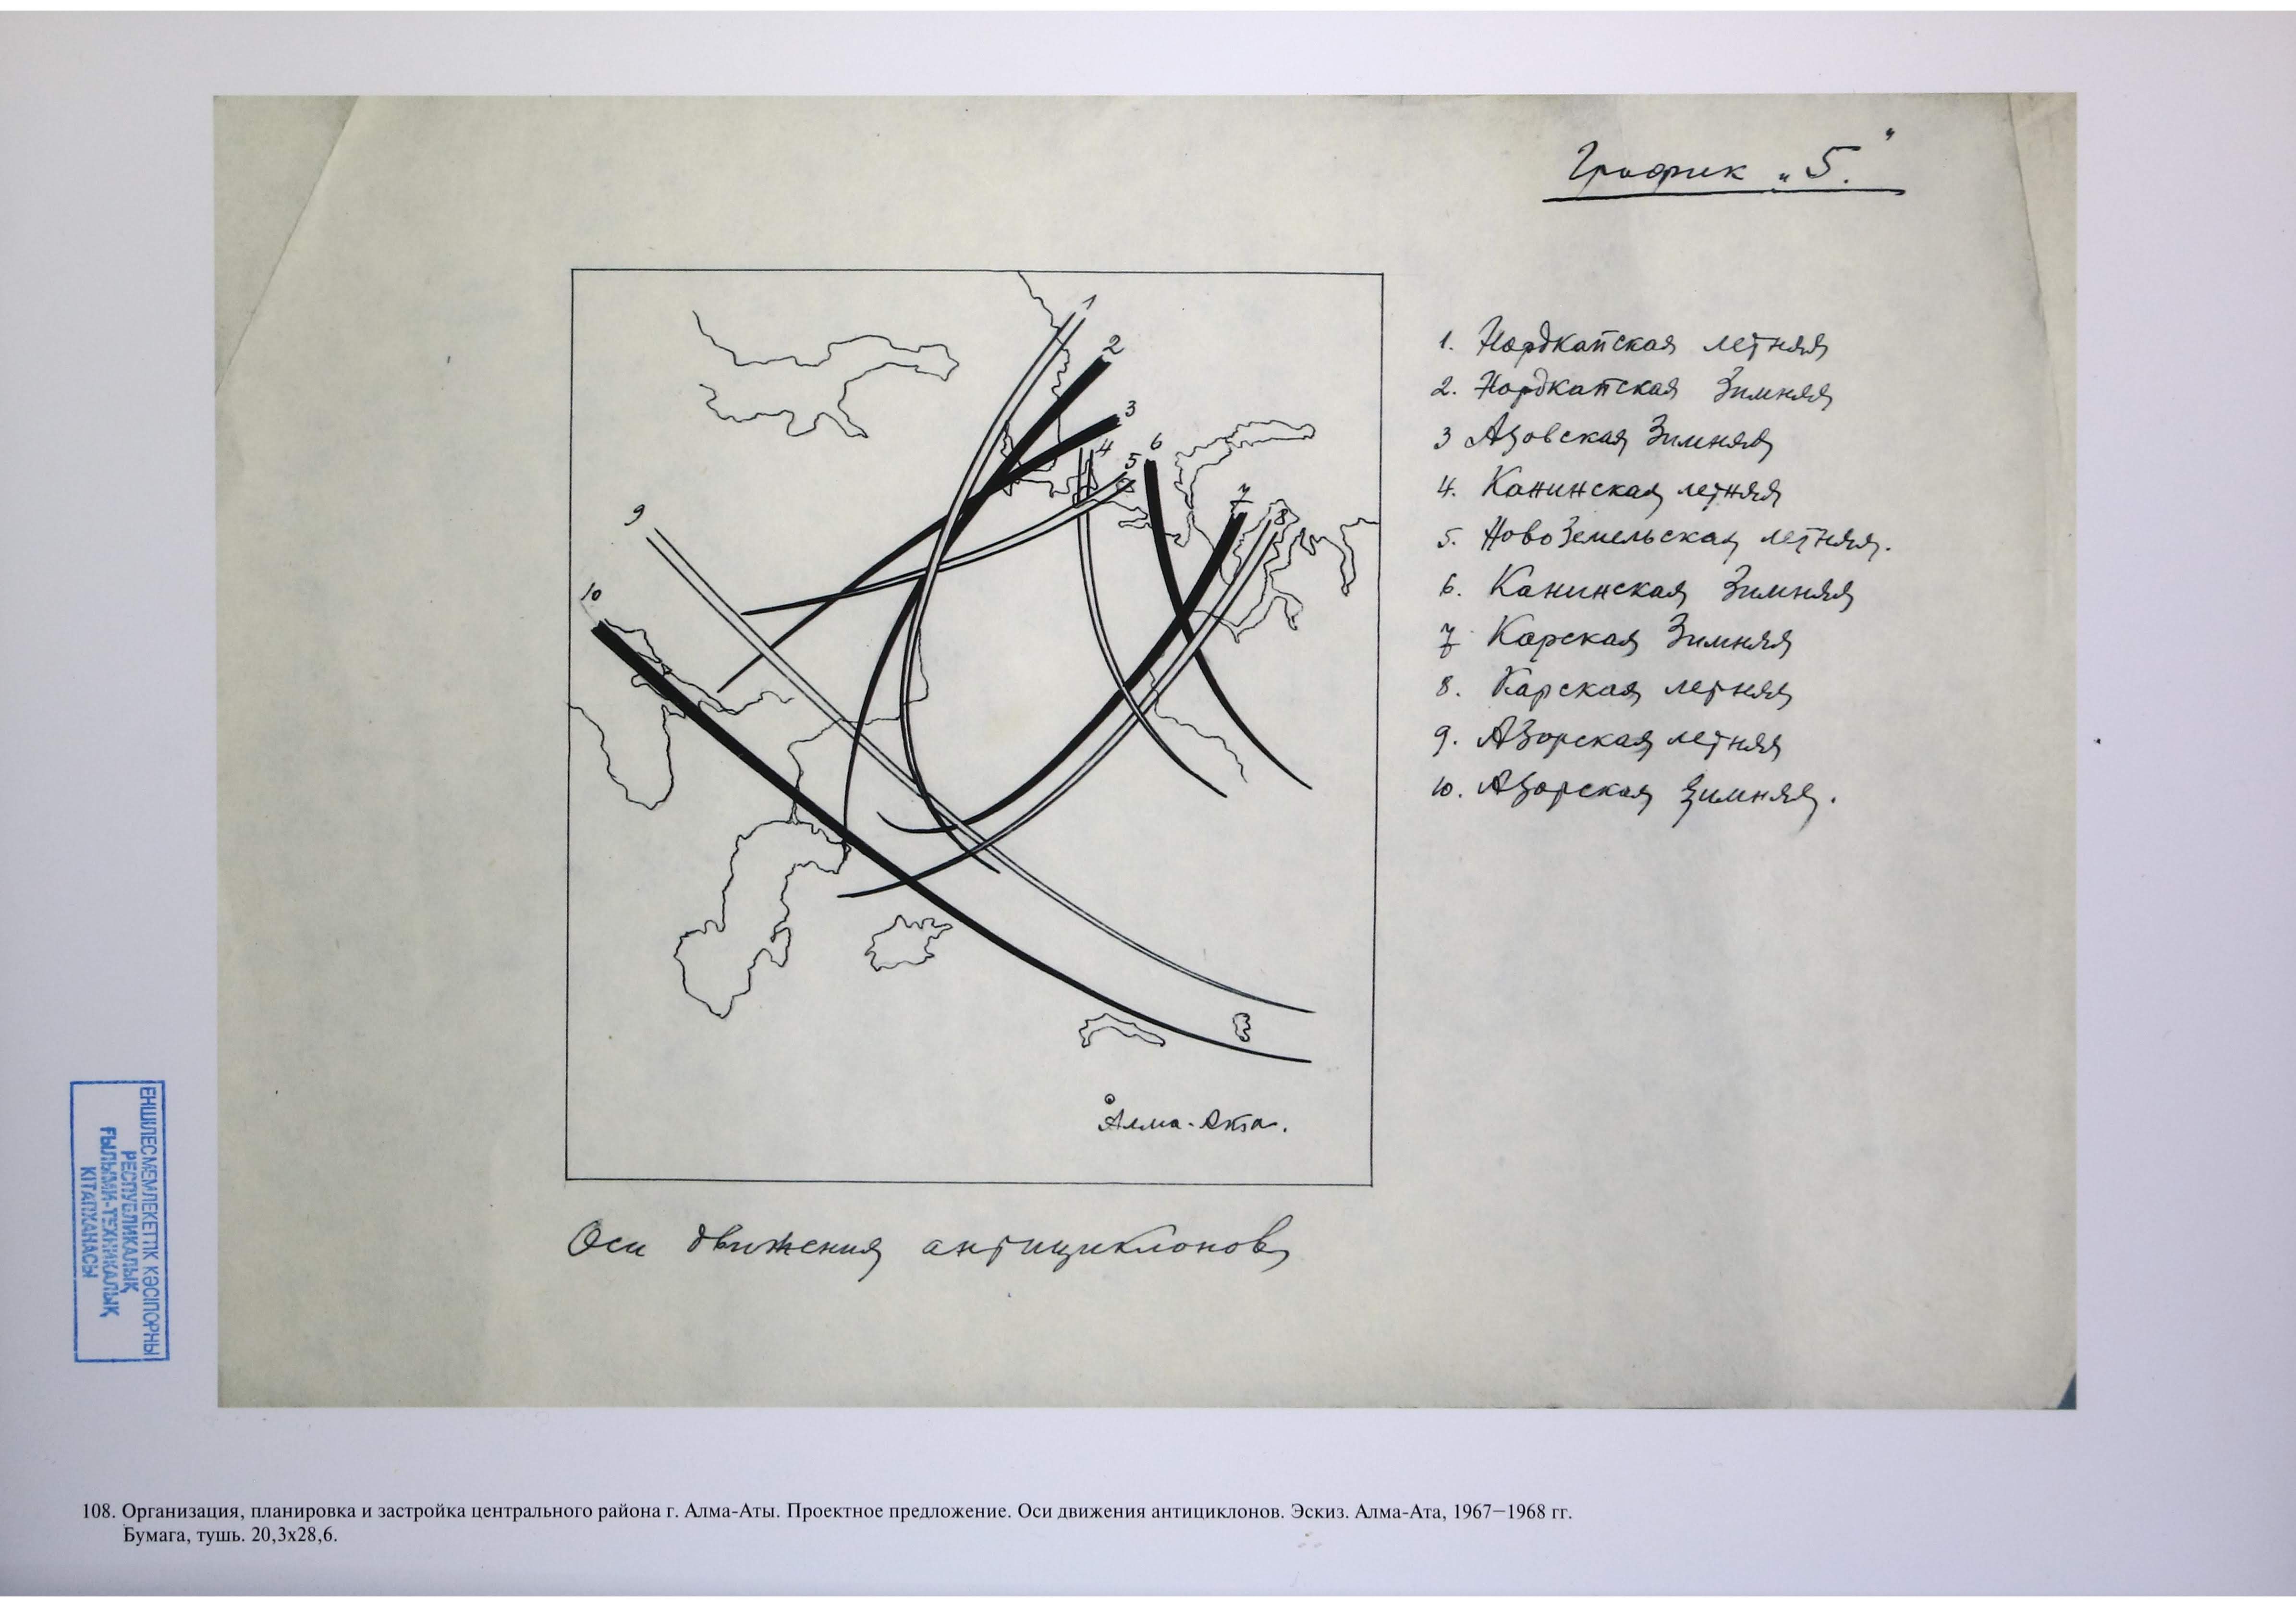 График „5."
1
2
3
4
5
6
7
8
9
10
1. Нордкапская летняя
2. Нордкапская Зимняя
3 Азовская Зимняя
4. Канинская летняя
5. Новоземельская летняя.
6. Канинская Зимняя
7 Карская Зимняя
8. Карская летняя
9. Азорская летняя
10. Азорская зимняя.
Алма-Ата.
Оси движения антициклонов
ЕНШІЛЕСМЕМЛЕКЕТТІК КӘСІПОРНЫ
РЕСПУБЛИКАЛЫҚ
ҒЫЛЫМИ-ТЕХНИКАЛЫҚ
КІТАПХАНАСЫ
108. Организация, планировка и застройка центрального района г. Алма-Аты. Проектное предложение. Оси движения антициклонов. Эскиз. Алма-Ата, 1967–1968 гг.
Бумага, тушь. 20,3х28,6.